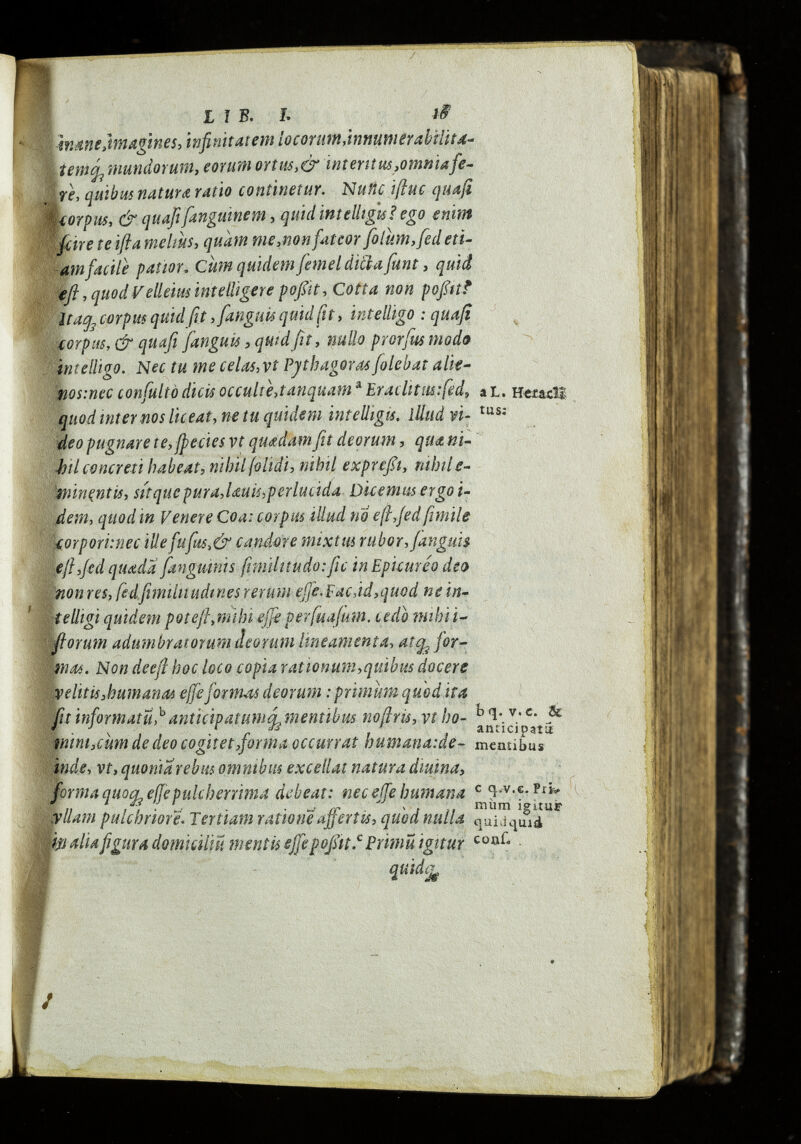 LIB. I.
inane, imagines, infinitatem locorum, innumerabilita-
temq́; mundorum, eorum ortus, & interitus, omnia fe-
re, quibus naturæ ratio continetur. Nunc istuc quasi
corpus, & quasi sanguinem, quid intelligis? ego enim
scire te ista melius, quàm me, non fateor solùm, sed eti-
am facilè patior. Cùm quidem semel dicta sunt, quid
est, quod Velleius intelligere poßit, Cotta non poßit?
Itaq; corpus quid sit, sanguis quid sit, intelligo : quasi
corpus, & quasi sanguis, quid sit, nullo prorsus modo
intelligo. Nec tu me celas, vt Pythagoras solebat alie-
nos: nec consultò dicis occultè, tanquam ª Eraclitus: sed,
quod inter nos liceat, ne tu quidem intelligis. Illud vi-
deo pugnare te, species vt quædam sit deorum, quæ ni-
hil concreti habeat, nihil solidi, nihil expreßi, nihil e-
minentis, sitque pura, læuis, perlucida. Dicemus ergo i-
dem, quod in Venere Coa: corpus illud nõ est, sed simile
corpori: nec ille fusus, & candore mixtus rubor, sanguis
est, sed quædã sanguinis similitudo: sic in Epicuréo deo
non res, sed similitudines rerum esse. Fac, id, quod ne in-
telligi quidem potest, mihi esse persuasum. cedò mihi i-
storum adumbratorum deorum lineamenta, atq; for-
mas. Non deest hoc loco copia rationum, quibus docere
velitis, humanas esse formas deorum : primùm quòd ita
sit informatũ,ᵇ anticipatumq́; mentibus nostris, vt ho-
mini, cùm de deo cogitet, forma occurrat humana: de-
inde, vt, quoniã rebus omnibus excellat natura diuina,
forma quoq; esse pulcherrima debeat: nec esse humana
vllam pulchriorẽ. Tertiam rationẽ affertis, quòd nulla
in alia figura domiciliũ mentis esse poßit.ᶜ Primũ igitur
quidq;
a L. Heracli
tus:
b q. v. c. &
anticipatũ
mentibus
c q. v. c. Pri-
mùm igitur
quidquid
conf.